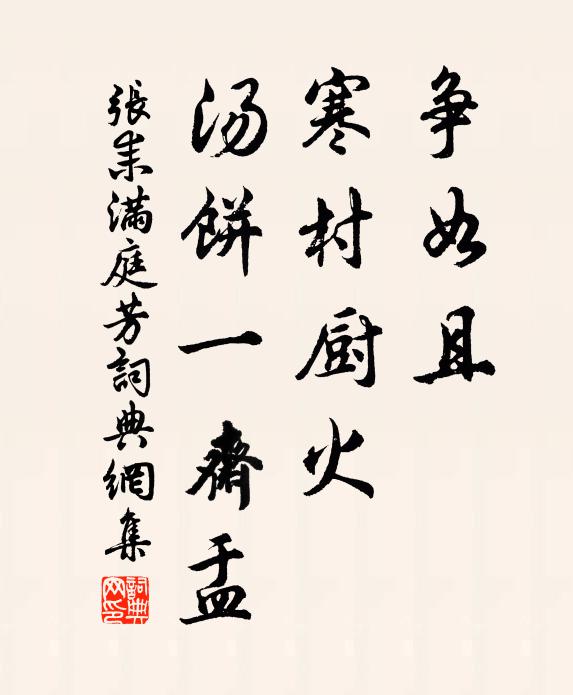 争如且
寒村厨火
汤饼一齋盂
張耒滿庭芳詞典網集
詞典网印